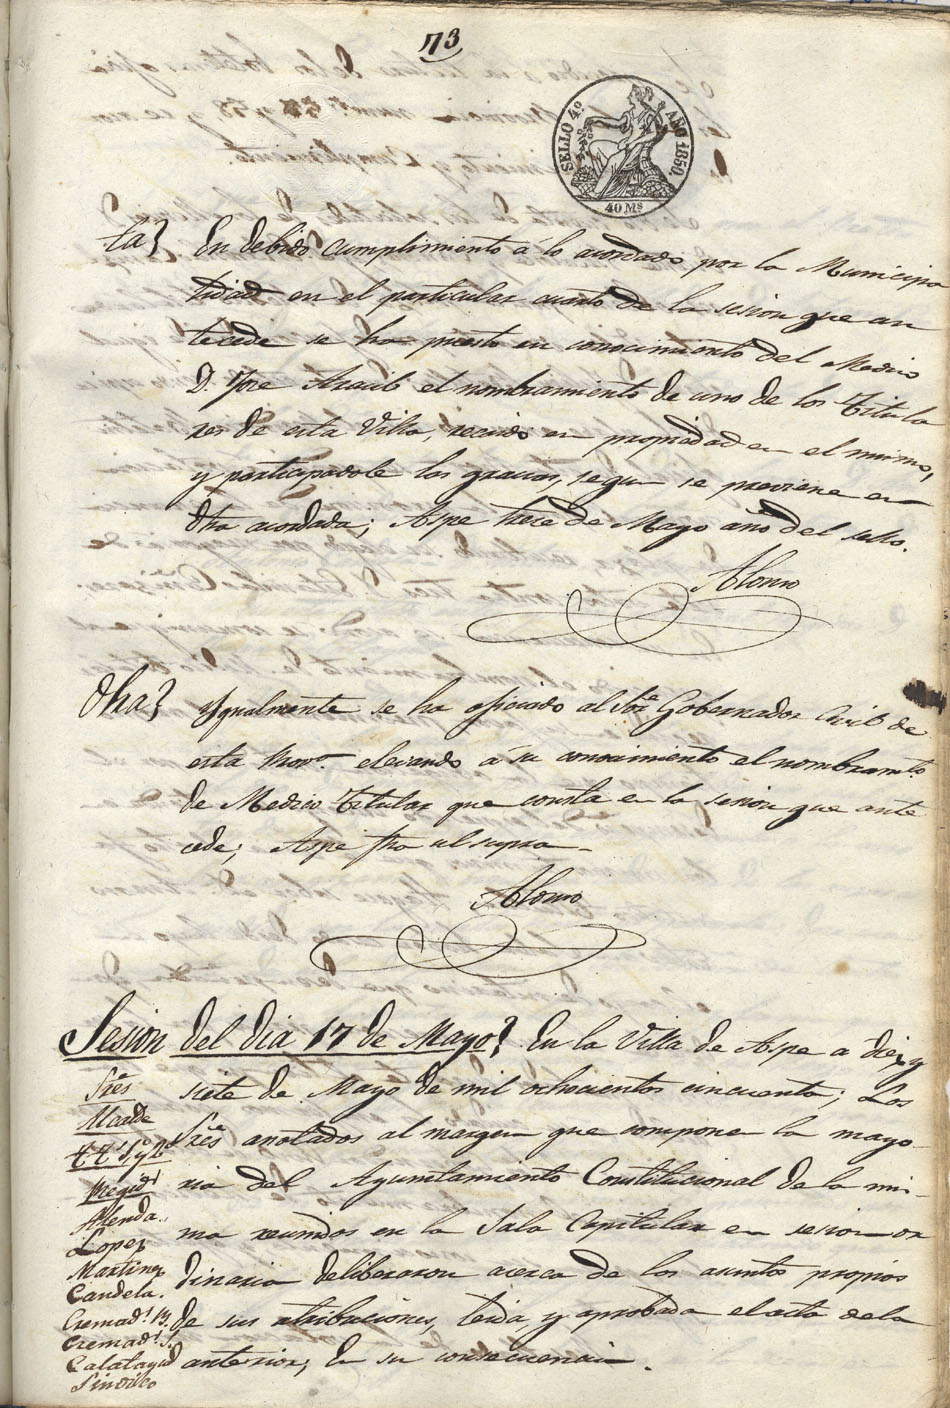 73
SELLO 4º AÑO 1850.
40 Ms
ta} En debido cumplimiento á lo acordado por la Municipa
lidad en el particular cuarto de la sesion que an
tecede se ha puesto en conocimiento del Medico
D. José Aracil el nombramiento de uno de los Titula
res de esta Villa, en propiedad en el mismo,
y participadole las gracias, segun se previene en
dha acordada; Aspe trece de Mayo año del sello.
Alonso
Otra} Ygualmente se ha oficiado al Sor. Gobernador Civil de
esta Prova. elevando á su conocimiento el nombramto.
de Medico titular que consta en la sesion que ante
cede; Aspe fha ut supra.
Alonso
Sesion del dia 17 de Mayo} En la Villa de Aspe a diez y
Sres siete de Mayo de mil ochocientos cincuenta; Los
Alcalde
Ttes 1º y 2º Sres anotados al margen que componen la mayo
Regids ria del Ayuntamiento Constitucional de la mi-
Alenda.
Lopez ma reunidos en la Sala Capitular en sesion or
Martinez dinaria deliberaron acerca de los asuntos propios
Candela.
Cremads. M. de sus atribuciones, leida y aprobada el acta de la
Cremads. J.
Calatayud anterior; En su consecuencia.
Sindico